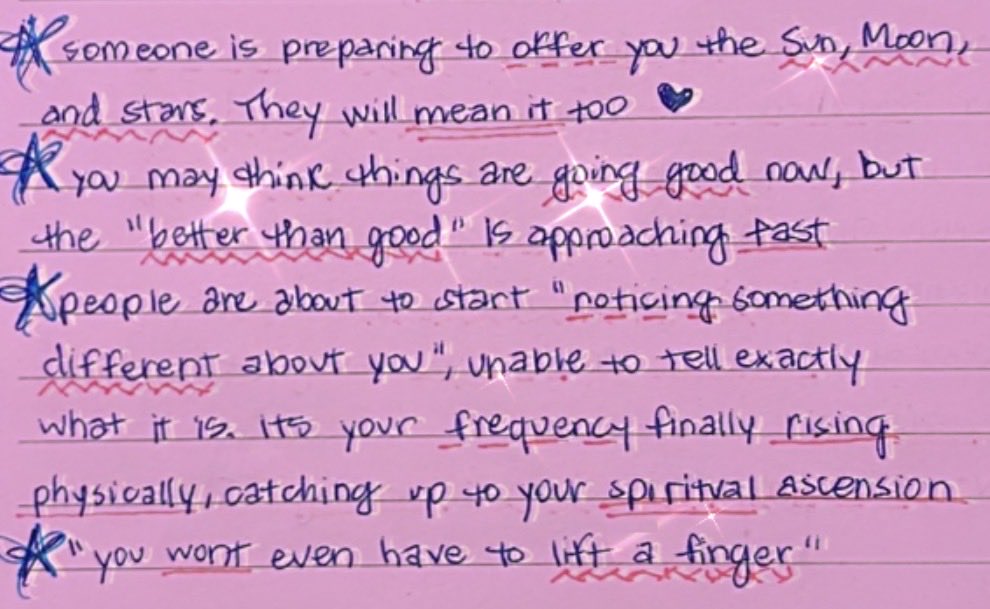 someone is preparing to offer you the Sun, Moon,
and stars. They will mean it too
you may think things are going good now, but
the "better than good" is approaching fast
people are about to start "noticing something
different about you", unable to tell exactly
what it is. its your frequency finally rising
physically, catching up to your spiritual ascension
"you wont even have to lift a finger"